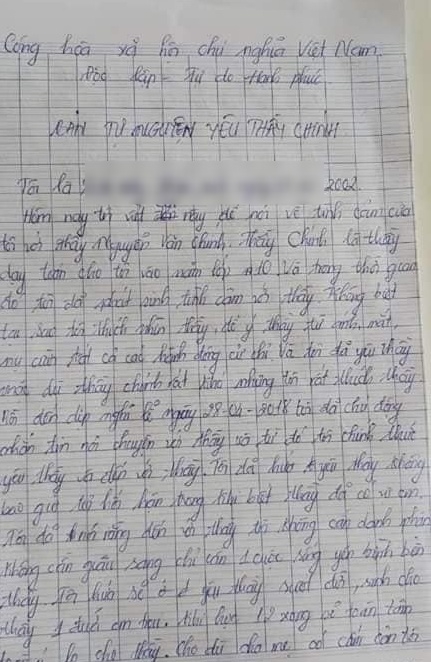 Cộng hòa xã hội chủ nghĩa Việt Nam.
Độc lập - Tự do - Hạnh phúc
BẢN TỰ NGUYỆN YÊU THẦY CHÍNH
Tôi là: 2002.
Hôm nay tôi viết đơn này để nói về tình cảm của
tôi với thầy Nguyễn Văn Chính. Thầy Chính là thầy
dạy toán cho tôi vào năm lớp A10 và trong thời gian
đó tôi đã phát sinh tình cảm với thầy không biết
tại sao tôi thích nhìn thầy, để ý thầy từ ánh mắt,
nụ cười tất cả các hành động cử chỉ và tôi đã yêu thầy
mặc dù thầy chính rất khó nhưng tôi rất thích thầy.
Rồi đến dịp nghỉ lễ ngày 28-04-2018 tôi đã chủ động
nhắn tin nói chuyện với thầy và từ đó tôi chính thức
yêu thầy và đến với thầy. Tôi đã hứa yêu thầy không
bao giờ tôi hối hận trong khi biết thầy đã có vợ con.
Tôi đã rằng đến với thầy tôi không cần danh phận
không cần giàu sang chỉ cần 1 cuộc sống yên bình bên
thầy. Tôi hứa sẽ ở yêu thầy suốt đời, sinh cho
thầy 1 đứa con trai. Khi học 12 xong sẽ toàn tâm
lo cho thầy. Cho dù cha mẹ có cản tôi